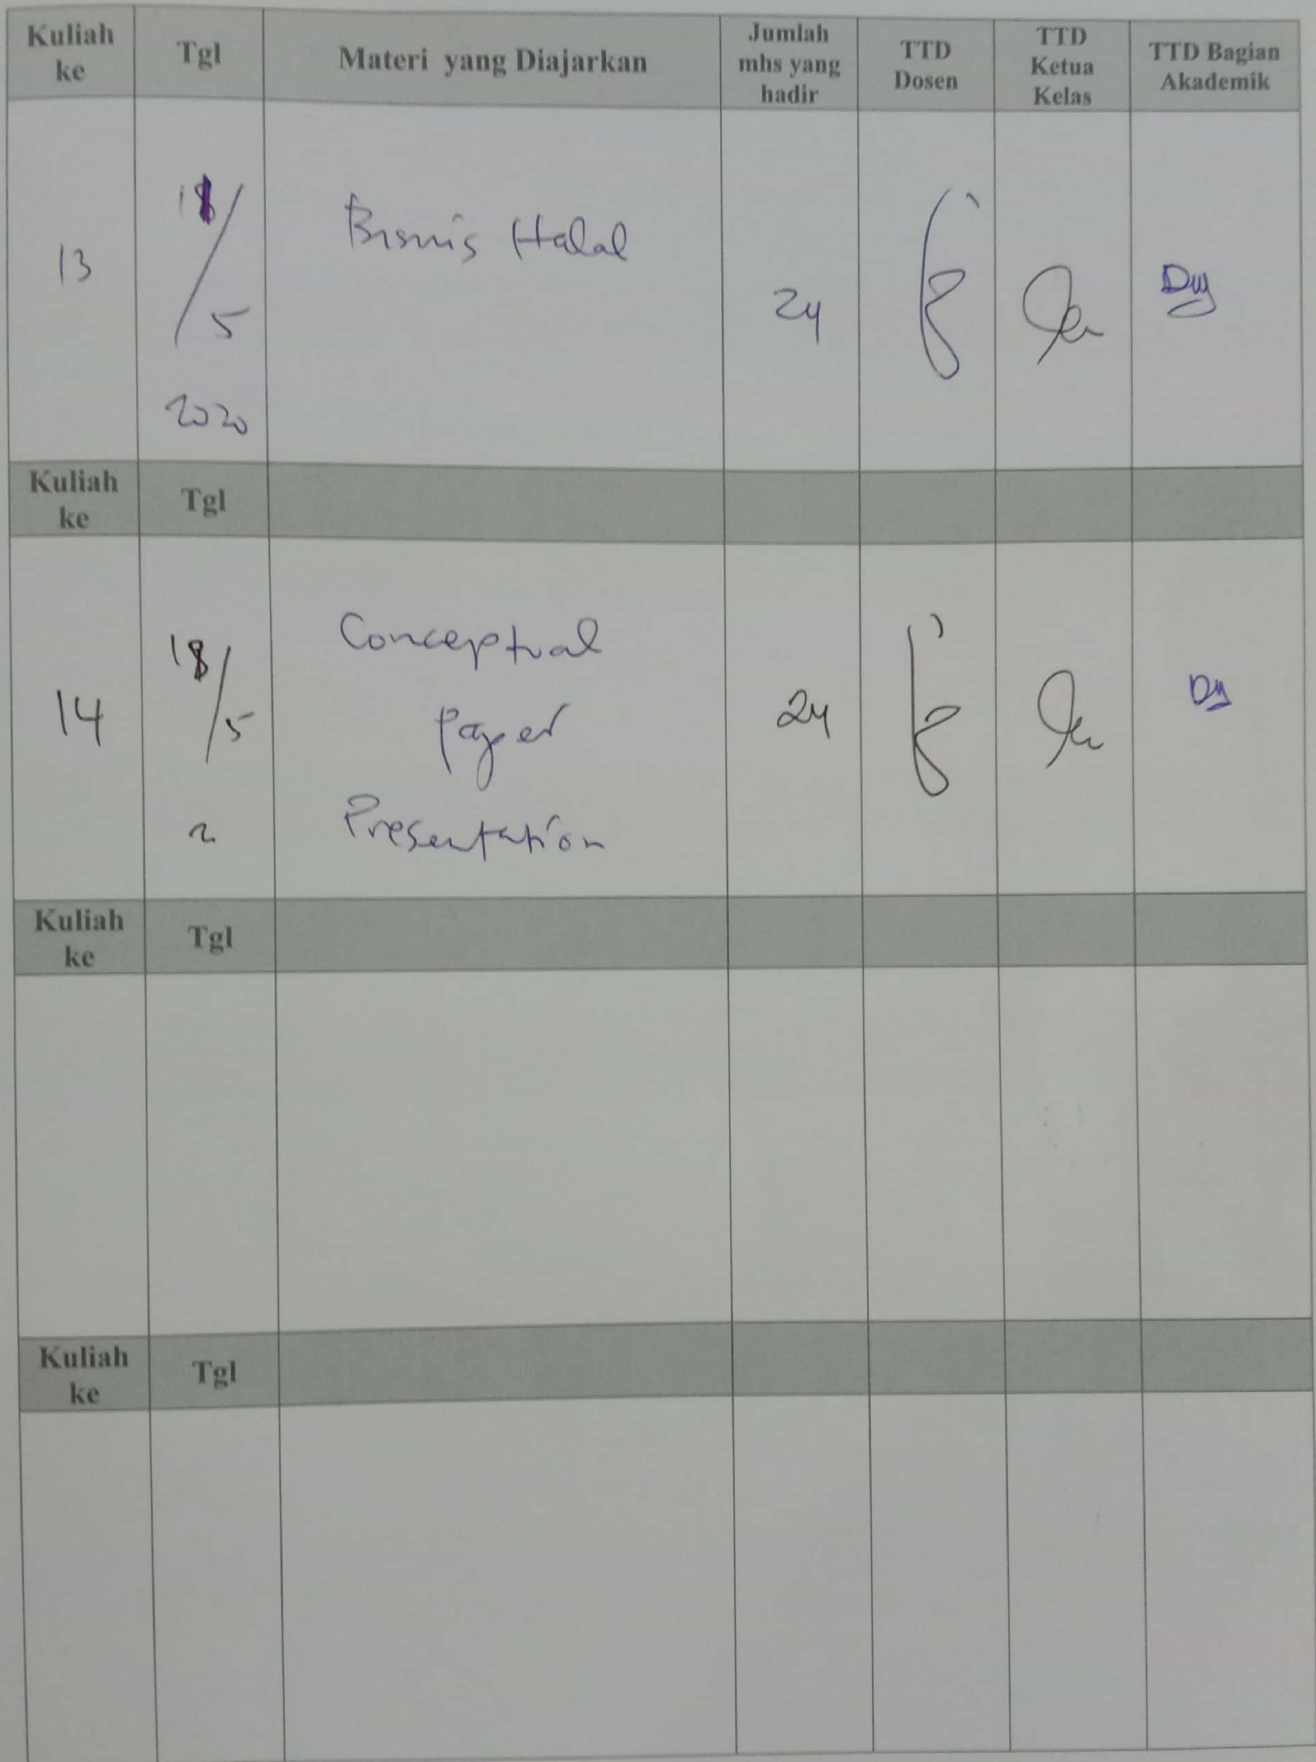 Kuliah ke Tgl Materi yang Diajarkan Jumlah mhs yang hadir TTD Dosen TTD Ketua Kelas TTD Bagian Akademik
13 18/5 2020 Bisnis Halal 24
Kuliah ke Tgl
14 18/5 Conceptual 24
Paper
Presentation
Kuliah ke Tgl
Kuliah ke Tgl